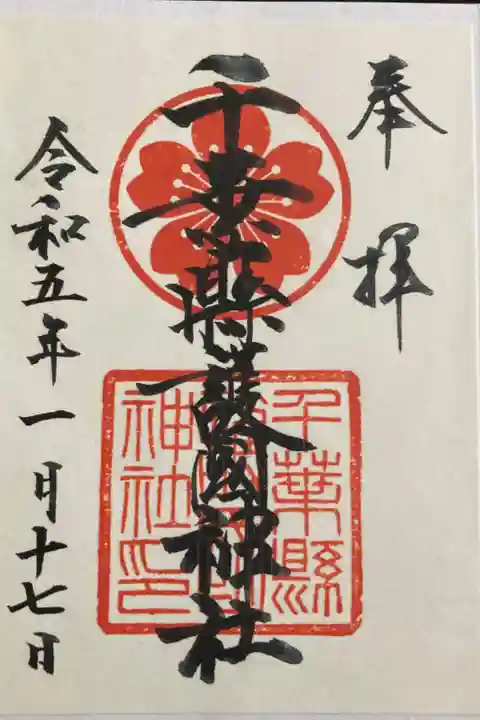 奉拝
千葉縣護國神社
千葉縣
護國
神社印
令和五年一月十七日